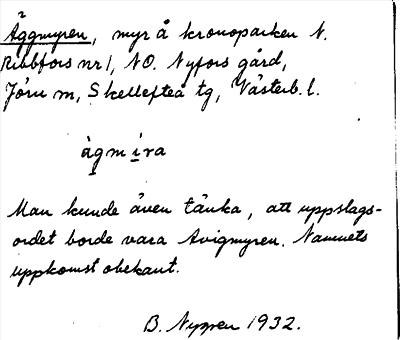 Äggmyren, myr å kronoparken N.
Ribbfors nr 1, NO. Nyfors gård,
Jörn sn, Skellefteå tg, Västerb. l.
àgmíra
Man kunde även tänka, att uppslags-
ordet borde vara Avigmyren. Namnets
uppkomst obekant.
B. Nygren 1932.